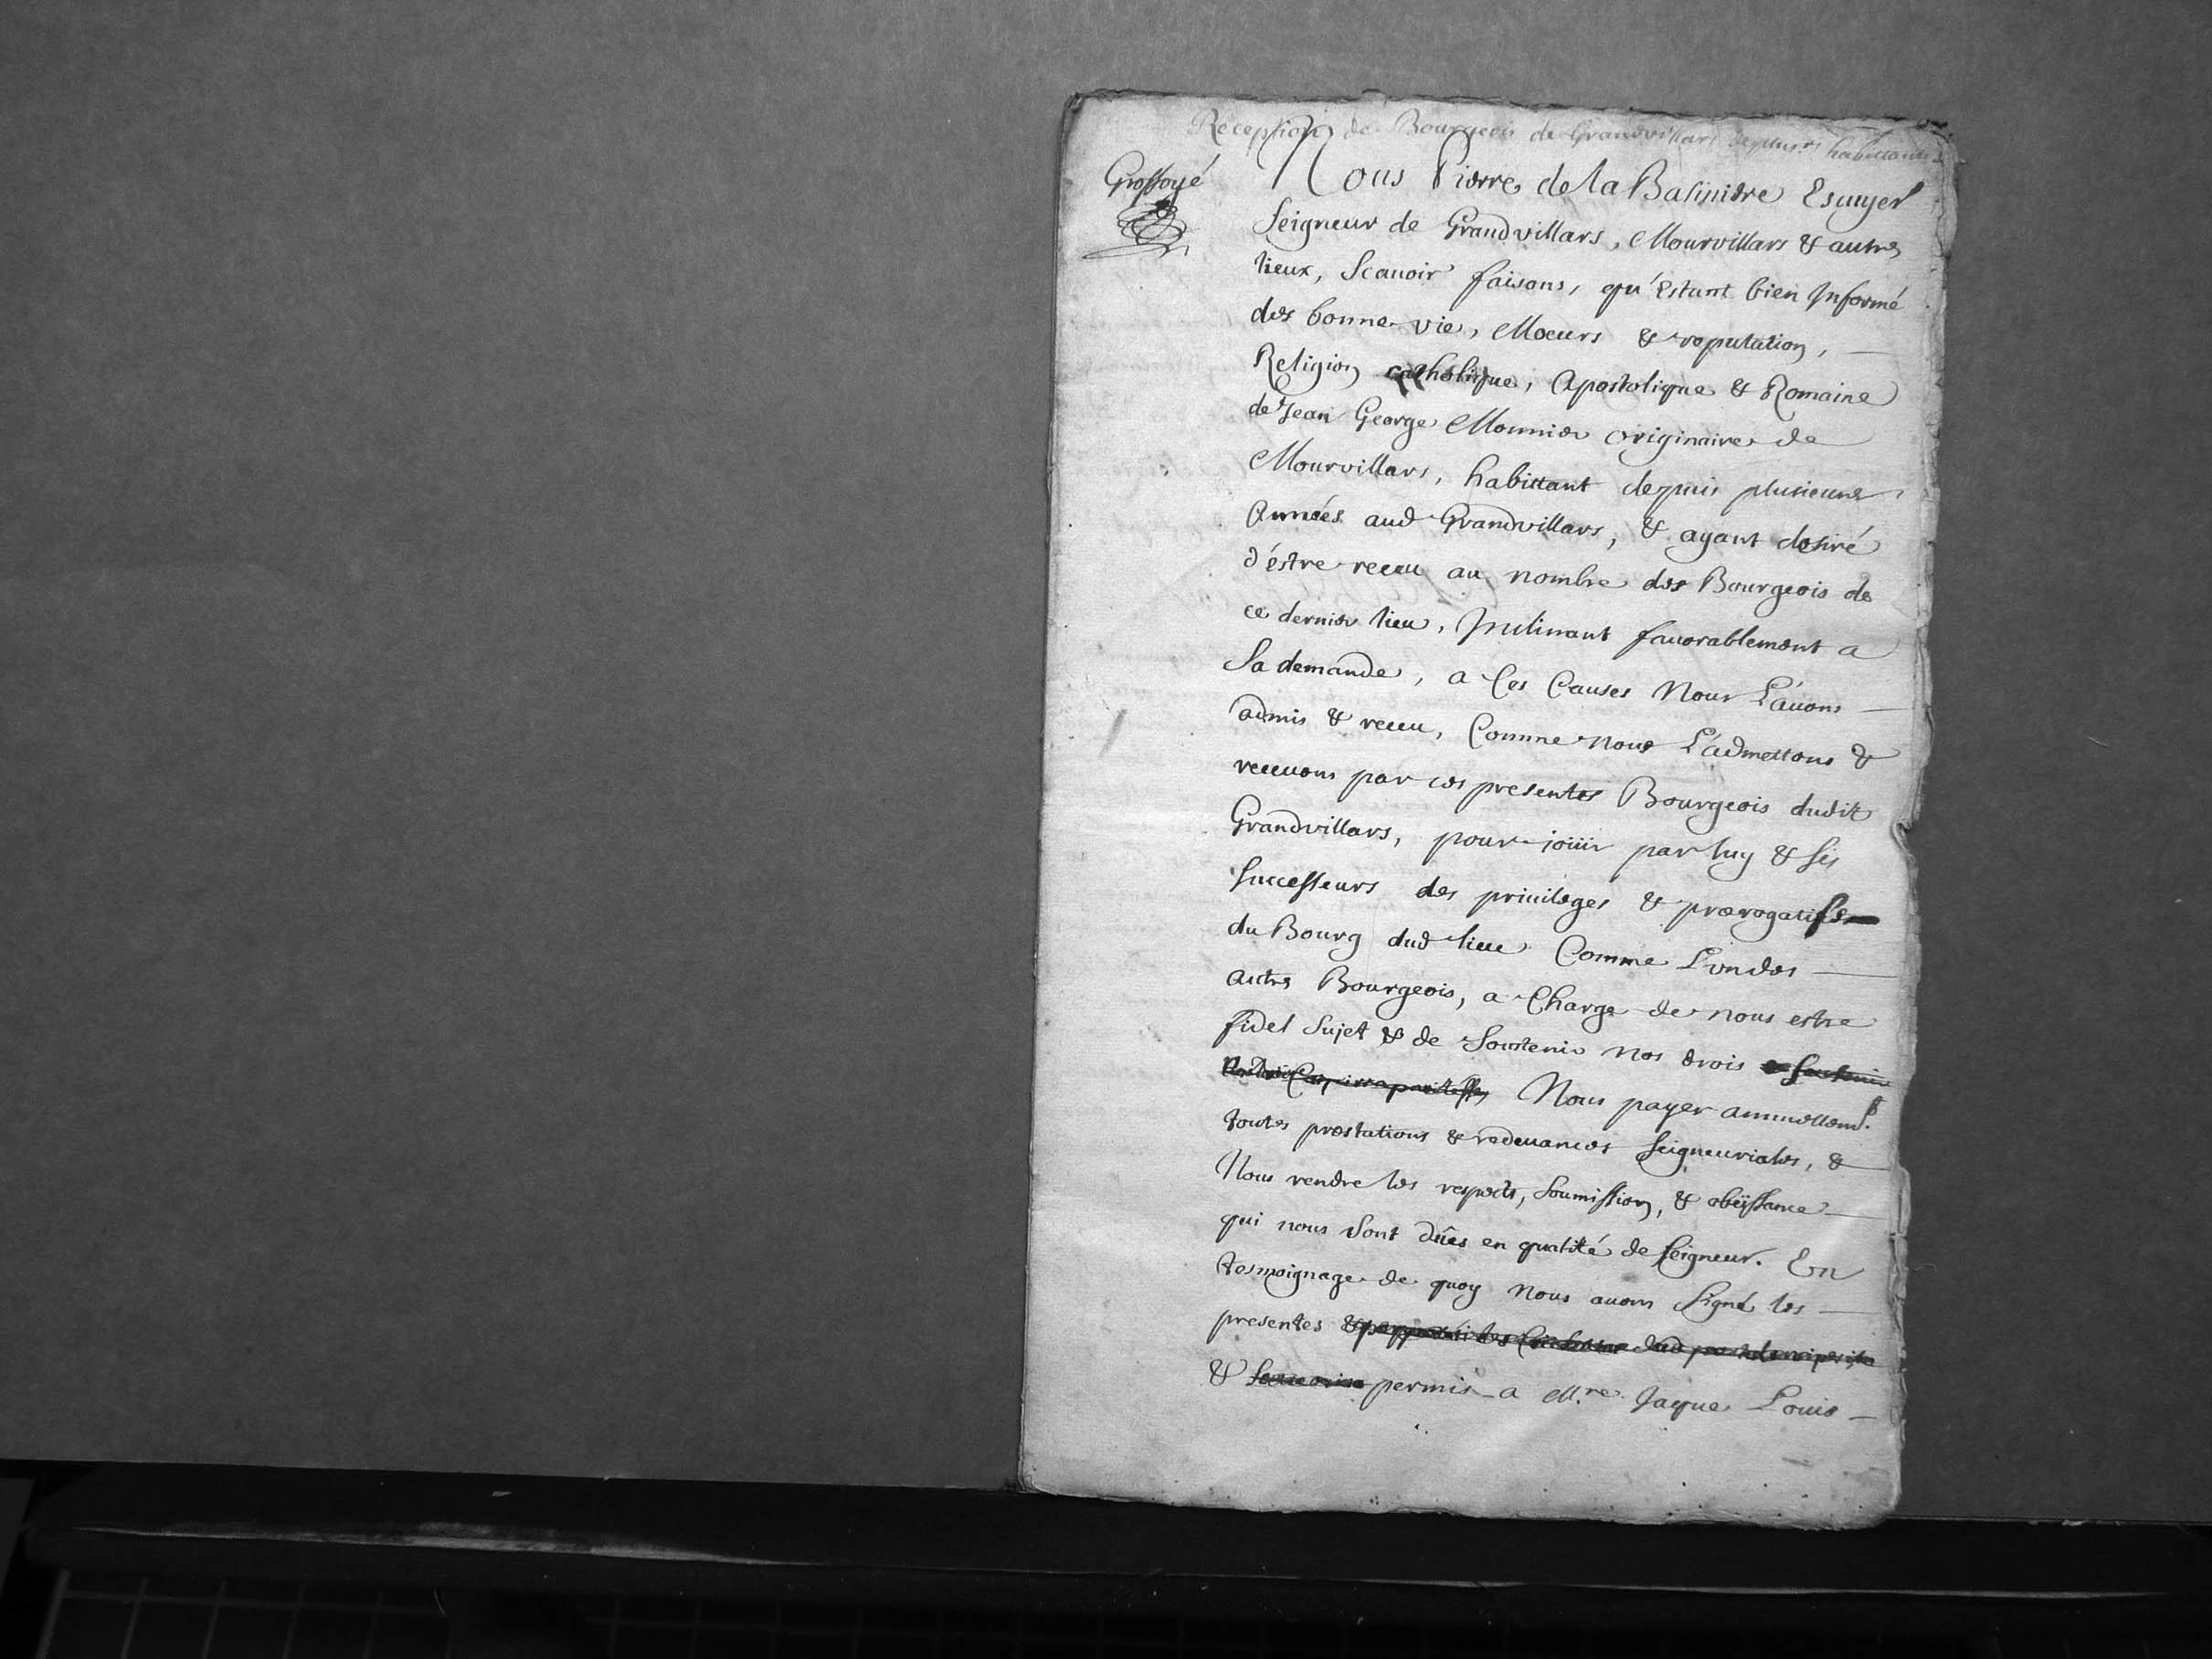 Reception de Bourgeois de Grandvillars de plus.rs habittants
Grossoyé
Nous Pierre de la Basiniere Escuyer
Seigneur de Grandvillars, Mourvillars & autres
lieux, Scauoir faisons, qu'Estant bien Informé
des bonne vie, Moeurs & reputation,
Religion catholique, Apostolique & Romaine
de Jean George Monnier originaire de
Mourvillars, habittant depuis plusieurs
Années aud Grandvillars, & ayant desiré
d'éstre receu au nombre des Bourgeois de
ce dernier lieu, Inclinant fauorablement a
Sa demande, a Ces Causes Nous L'áuons
admis & receu, Comme nous L'ádmettons &
receuons par ces presentes Bourgeois dudit
Grandvillars, pour joüir par luy & ses
Successeurs des priuileges & prærogatifs
du Bourg dud lieu Comme L'un des
autres Bourgeois, a Charge de nous estre
fidel Sujet & de Soustenir nos drois
Nous payer annuellem.t
toutes prestations & redeuances Seigneuriales, &
Nous rendre les respects, Soumission, & obeïssance
qui nous sont dûes en qualité de Seigneur. En
tesmoignage de quoy nous auons Signé les
presentes
& permis a M.re Jaque Louis